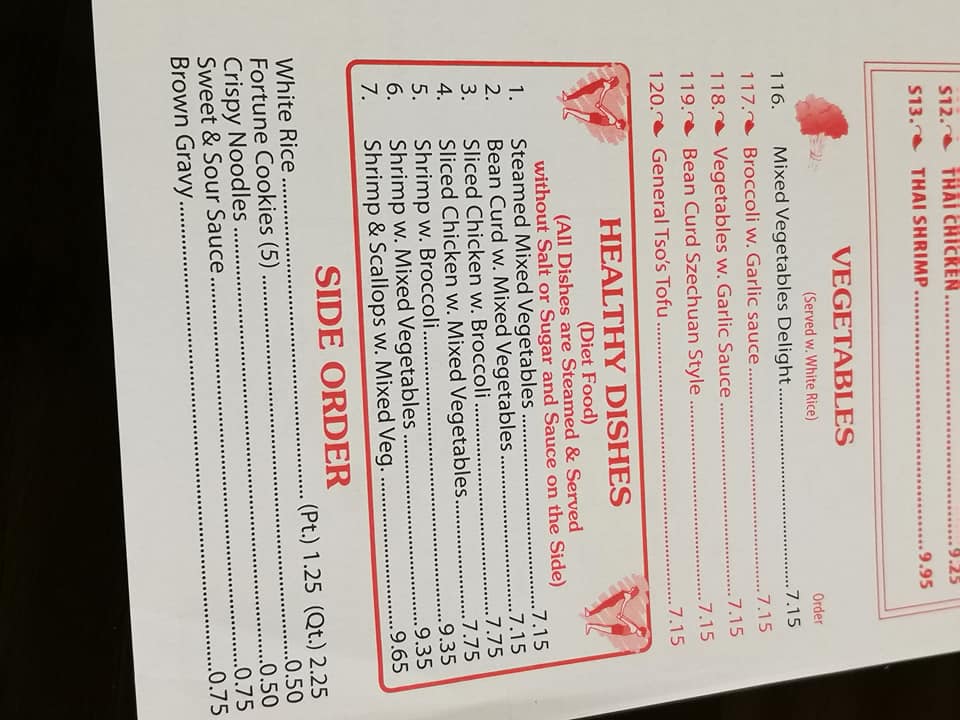 S12. THAI CHICKEN 9.25
S13. THAI SHRIMP 9.95
VEGETABLES
(Served w. White Rice)
Order
116. Mixed Vegetables Delight 7.15
117. Broccoli w. Garlic sauce 7.15
118. Vegetables w. Garlic Sauce 7.15
119. Bean Curd Szechuan Style 7.15
120. General Tso's Tofu 7.15
HEALTHY DISHES
(Diet Food)
(All Dishes are Steamed & Served
without Salt or Sugar and Sauce on the Side)
1. Steamed Mixed Vegetables 7.15
2. Bean Curd w. Mixed Vegetables 7.15
3. Sliced Chicken w. Broccoli 7.75
4. Sliced Chicken w. Mixed Vegetables 7.75
5. Shrimp w. Broccoli 9.35
6. Shrimp w. Mixed Vegetables 9.35
7. Shrimp & Scallops w. Mixed Veg. 9.65
SIDE ORDER
White Rice (Pt.) 1.25 (Qt.) 2.25
Fortune Cookies (5) 0.50
Crispy Noodles 0.50
Sweet & Sour Sauce 0.75
Brown Gravy 0.75